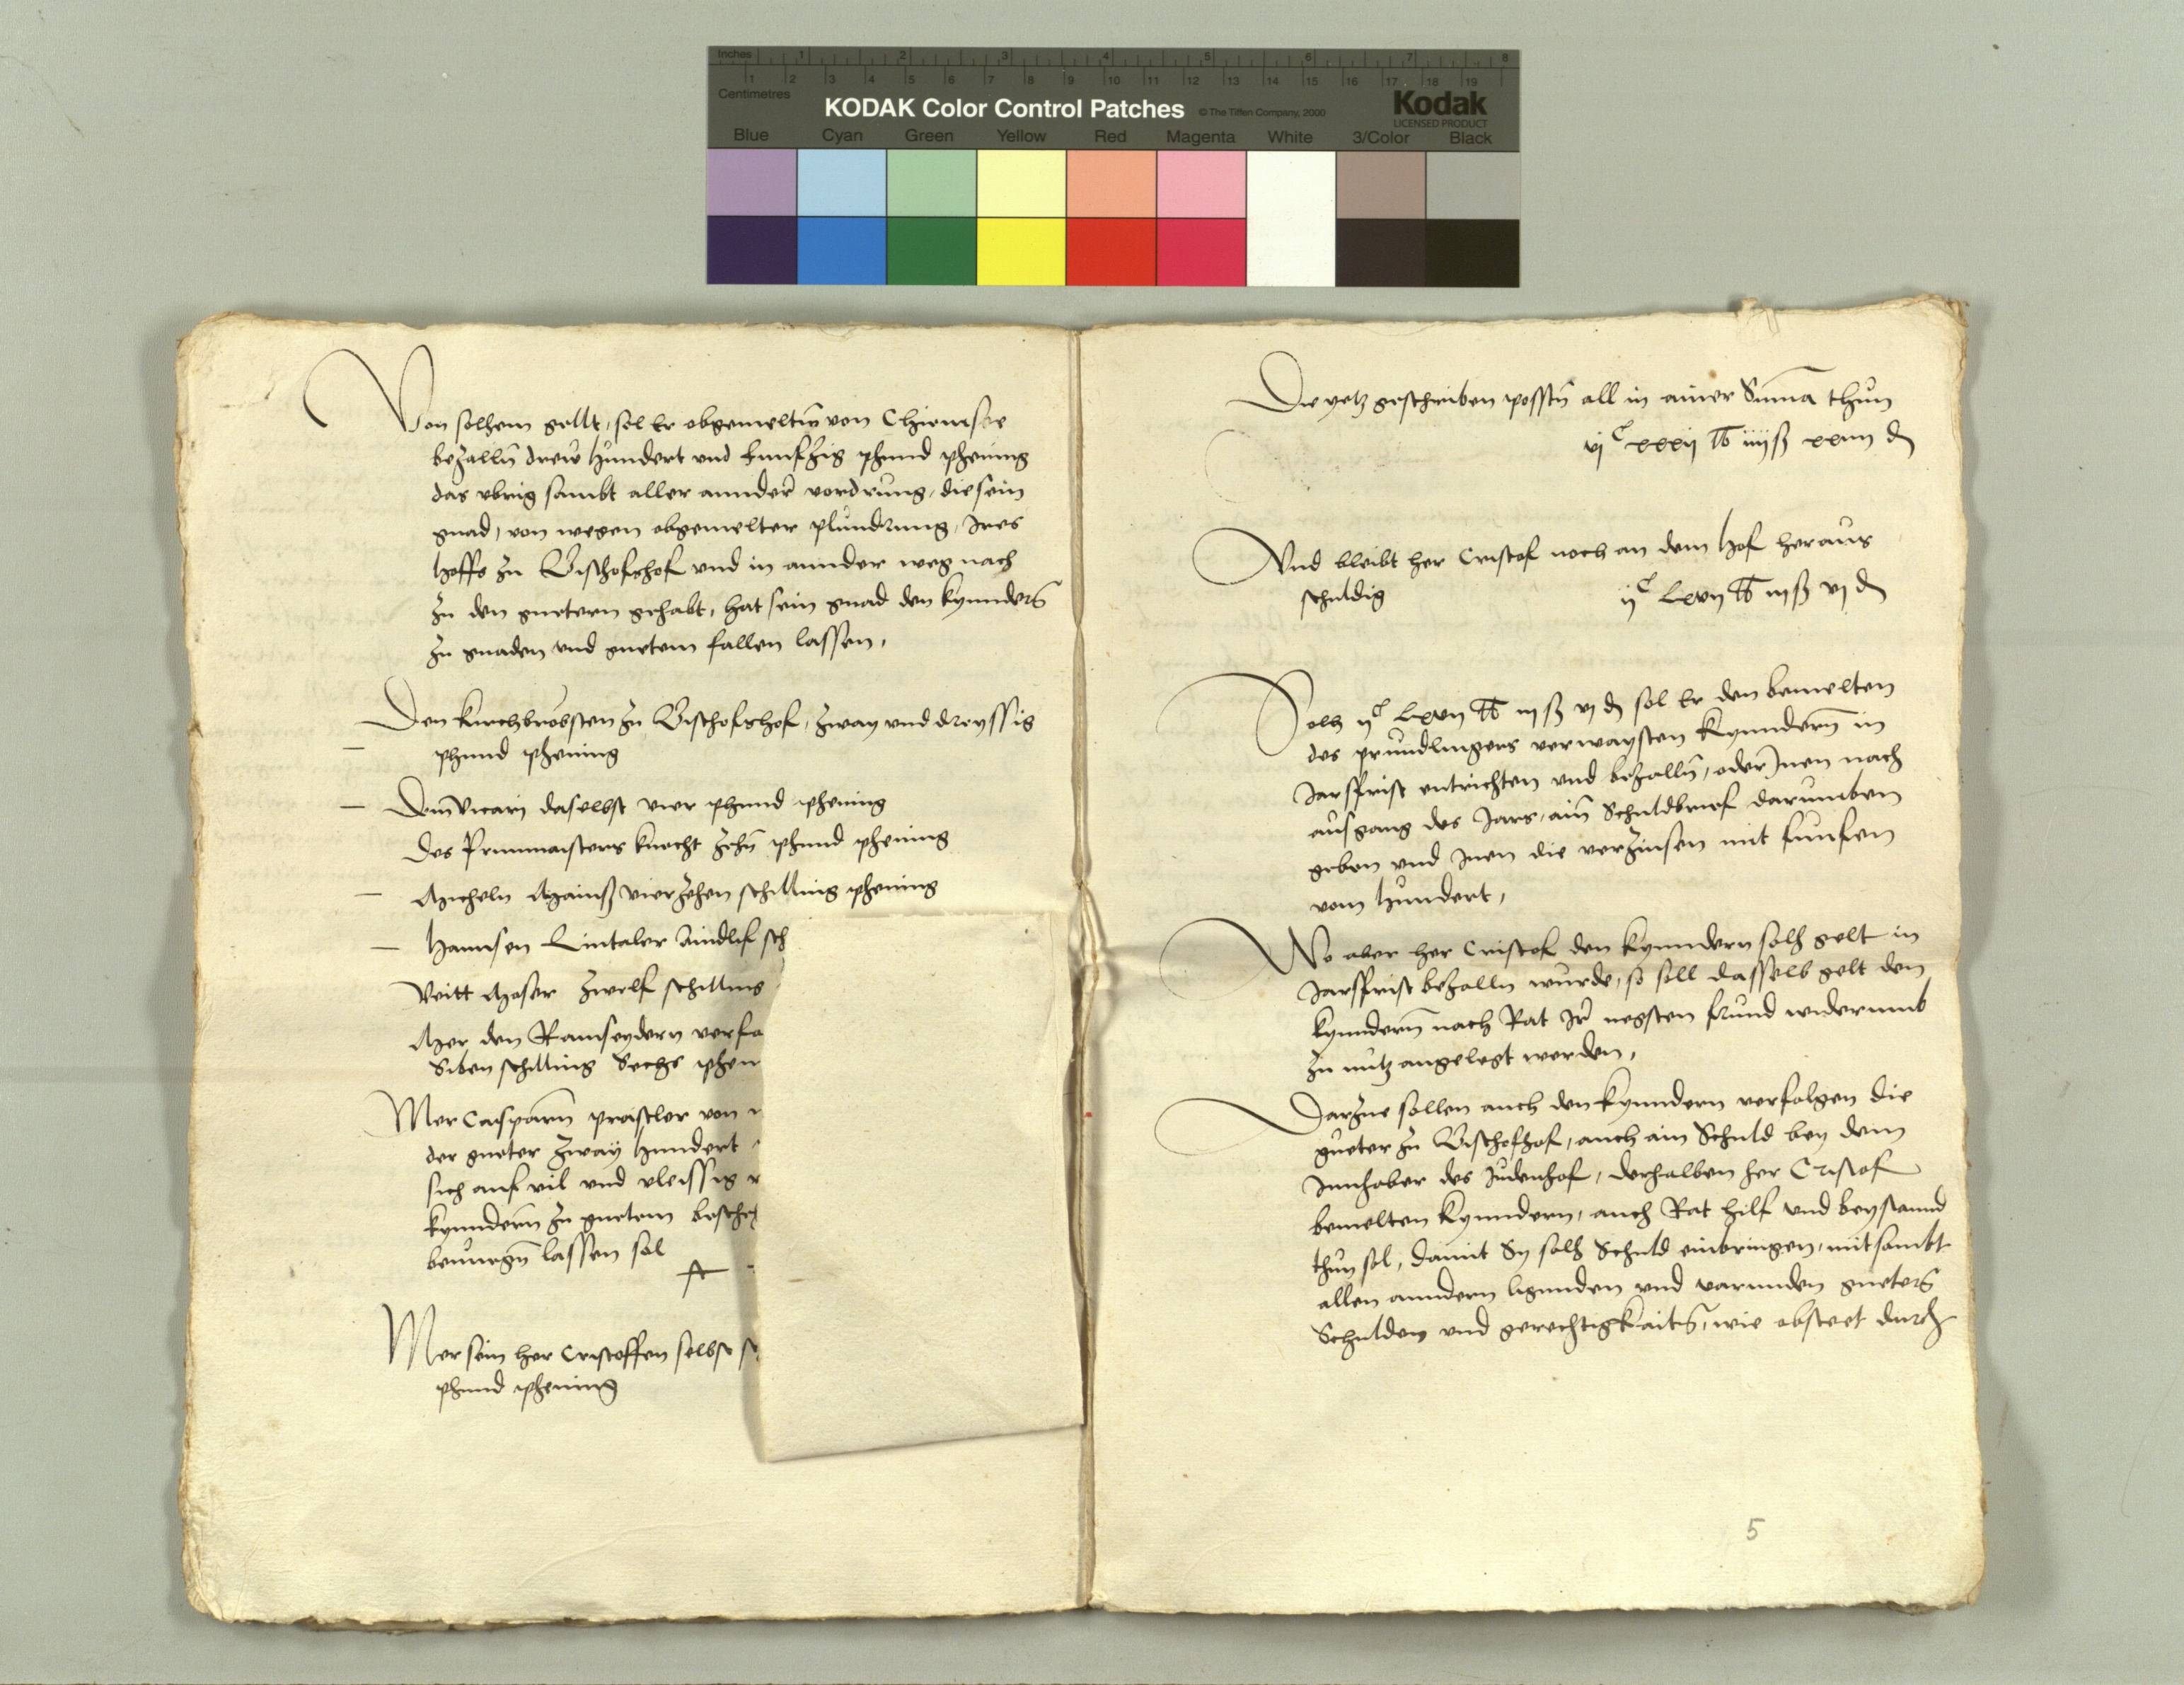 Inches 1 2 3 4 5 6 7 8
1 2 3 4 5 6 7 8 9 10 11 12 13 14 15 16 17 18 19
Centimetres
KODAK Color Control Patches © The Tiffen Company, 2000 Kodak
LICENSED PRODUCT
Blue Cyan Green Yellow Red Magenta White 3/Color Black
Von solhem gellt, sol Er obgemelten von Chiemsee
bezalln drew hundert und funfzig phund phening
das ubrig sambt aller annder vordrung, die sein
gnad, von wegen obgemelter plundrung, Ires
hoffs zu Bischofshof und in annder weg nach
zu den guetern gehabt, hat sein gnad den kynndern
zu gnaden und guetem fallen lassen,
Den kirchbröbsten zu Bischofshof, zway und dreyssig
phund phening
Dem vicari daselbst vier phund phening
Des knecht zehn phund phening
Micheln vierzehen schilling phening
Hannsen Lintaler Aindlif sch
Veitt Moser zwelf schilling
Mer den Ramseydern verfa
Siben schilling Sechs phen
Mer Casparn prästler von
der gueter zway hundert
sich auf vil und vleissig
kynndern zu guetem besche
lassen sol
Mer sein her Cristoffen selbst
phund phening
Die yetz geschriben possten all in ainer Summa thun
vjC xxxij lb iiij ß xxviij d
Und bleibt her Cristof noch an dem hof heraus
schuldig ijC Lxvij lb iij ß vj d
Solh ijC Lxvij lb iij ß vj d sol Er den bemelten
des verwaysten kynndern in
Jarsfrist entrichten und bezalln, oder Inen nach
ausgang des Jars, ain Schuldbrief darumben
geben und Inen die verzinsen mit funfen
vom hundert,
Wo aber her Cristof den kynndern solh gelt in
Jarsfrist bezalln wurde, so soll dasselb gelt den
kynndern nach Rat Ir negsten frund widerumb
zu nutz angelegt werden,
Darzue sollen auch den kynndern verfolgen die
gueter zu Bischofhof, auch ain Schuld bey dem
Innhaber des Judenhof, derhalben her Cristof
bemelten kynndern, auch Rat hilf und beystannd
thun sol, damit Sy solh Schuld einbringen, mitsambt
allen anndern ligunden und varunden guetern
Schulden und gerechtigkaiten, wie obsteet durch
5